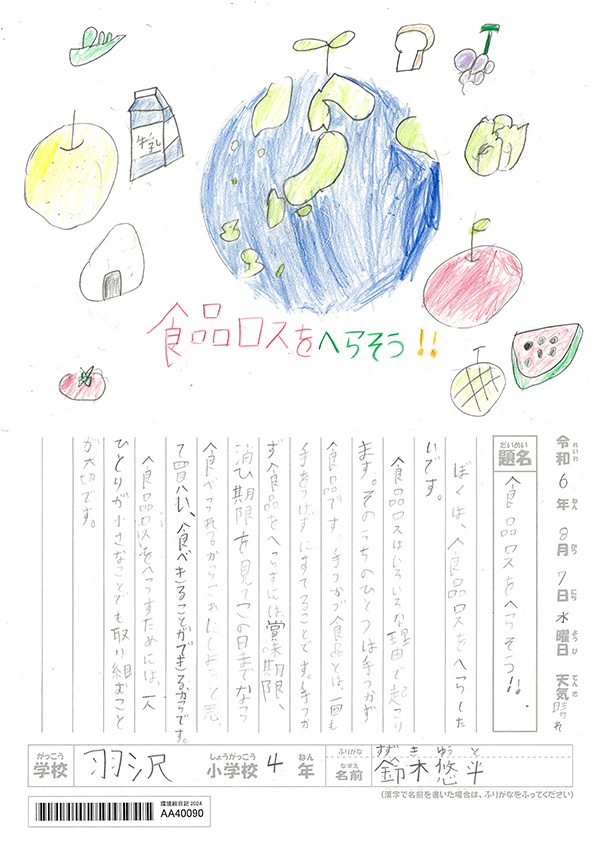 牛乳
食品ロスをへらそう!!
令和6年8月7日水曜日 天気晴れ
れいわ ねん がつ にち ようび てんき
だいめい
題名
食品ロスをへらそう!!
ぼくは、食品ロスをへらした
いです。
食品ロスはいろいろな理由で起こり
ます。そのうちのひとつは手つかず
食品です。手つかず食品とは、一回も
手をつけずにすてることです。手つか
ず食品をへらすには、賞味期限、
消ひ期限を見てこの日までなら
食べられるからこれにしようと思っ
て買い、食べきることができるからです。
食品ロスをへらすためには、一人
ひとりが小さなことでも取り組むこと
が大切です。
がっこう しょうがっこう ねん ふりがな すずきゆうと
学校 羽沢 小学校 4年 なまえ 名前 鈴木悠斗
(漢字で名前を書いた場合は、ふりがなをふってください)
環境絵日記2024
AA40090